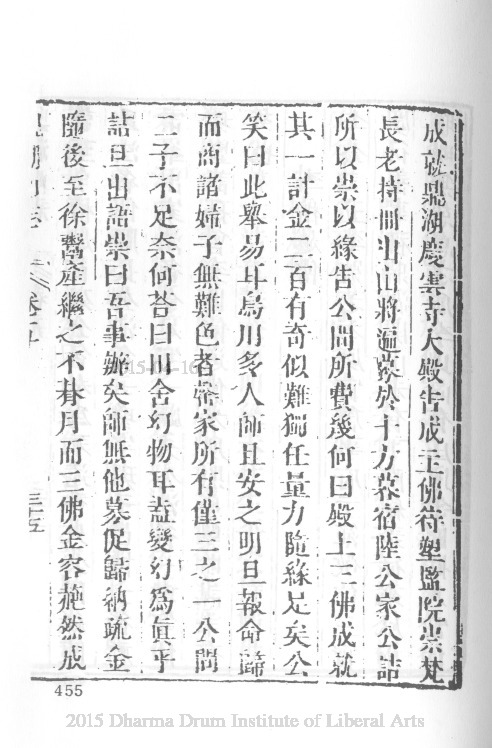 成就鼎湖慶雲寺大殿告成主佛待塑監院崇梵
長老持冊出山將遍募於十方暮宿陸公家公詰
所以崇以緣告公問所費幾何曰殿上三佛成就
其一計金二百有奇似難獨任量力隨緣足矣公
笑曰此舉易耳烏用多人師且安之明旦報命歸
而商諸婦子無難色者罄家所有僅三之一公問
二子不足奈何荅曰田舍幻物耳盍變幻爲眞乎
詰旦出語崇曰吾事辦矣師無他募促歸納疏金
隨後至徐鬻產繼之不朞月而三佛金容巍然成
湖山志
卷二
三十五
455
2015 Dharma Drum Institute of Liberal Arts